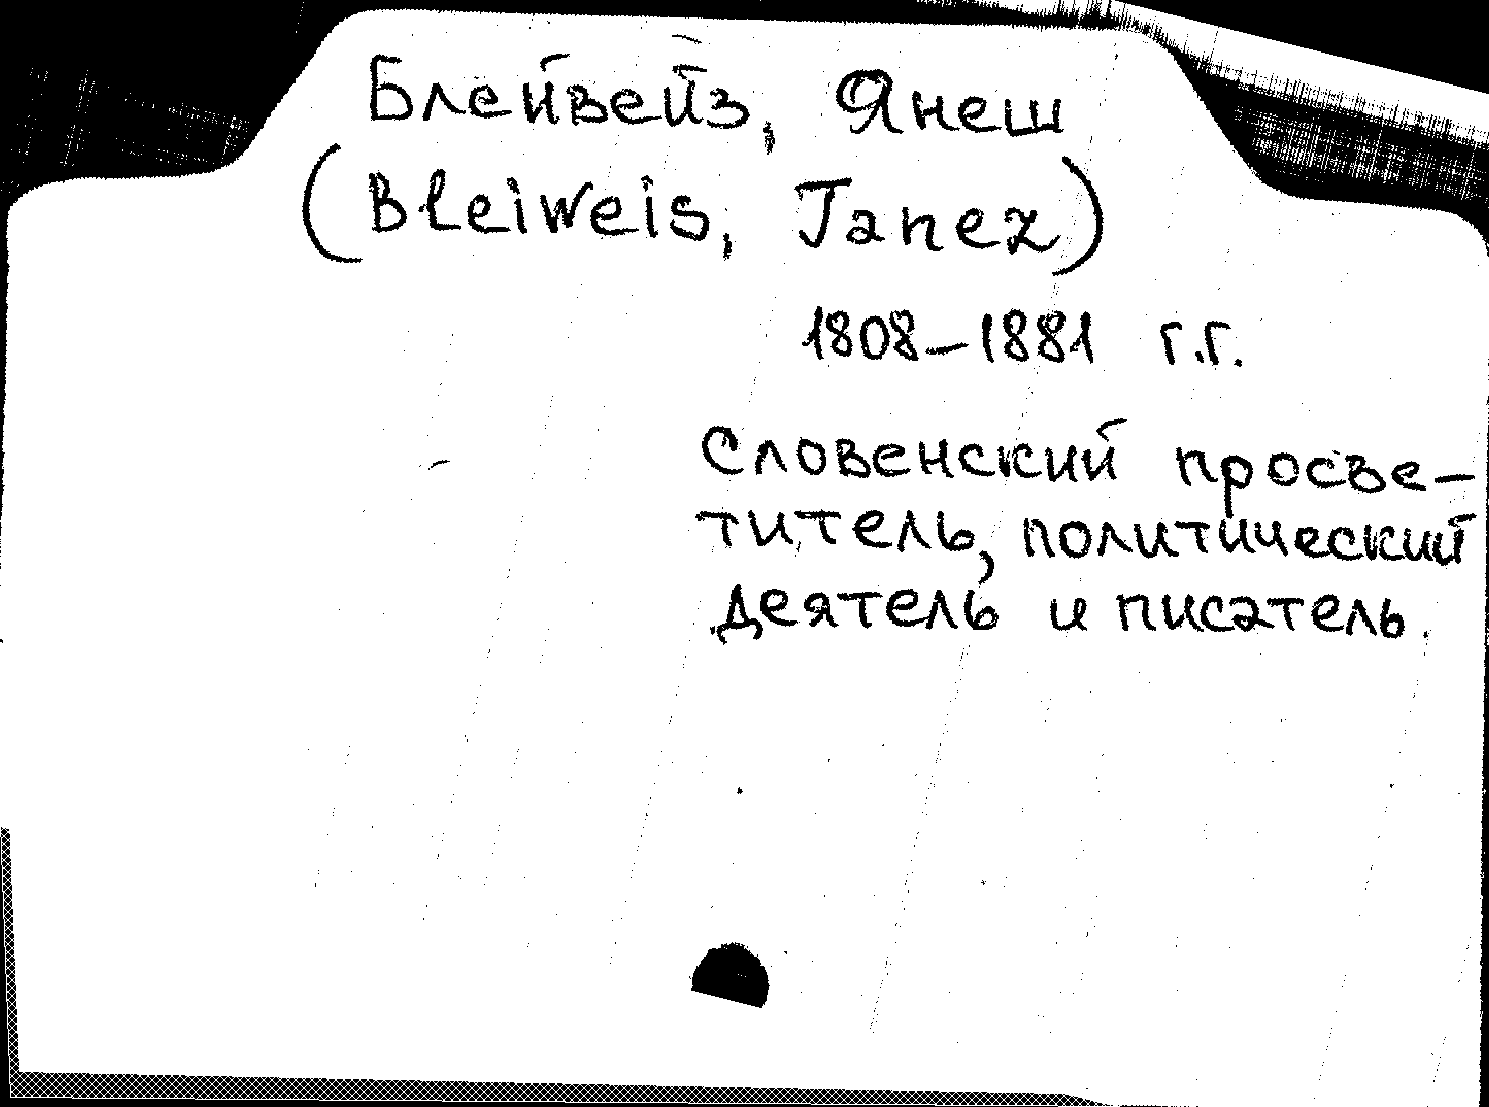 Блейвейз, Янеш
(Bleiweis, Janez)
1808–1881 г.г.
Словенский просве-
титель, политический
деятель и писатель.